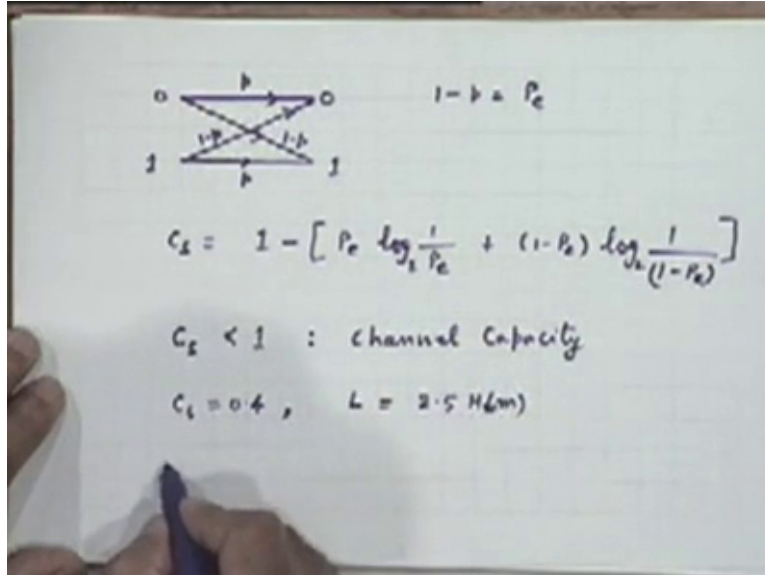 0 p 0 1-p = Pe
1-p 1-p
1 p 1
Cs = 1 - [ Pe log2 1/Pe + (1-Pe) log2 1/(1-Pe) ]
Cs < 1 : Channel Capacity
Cs = 0.4 , L = 2.5 H(m)